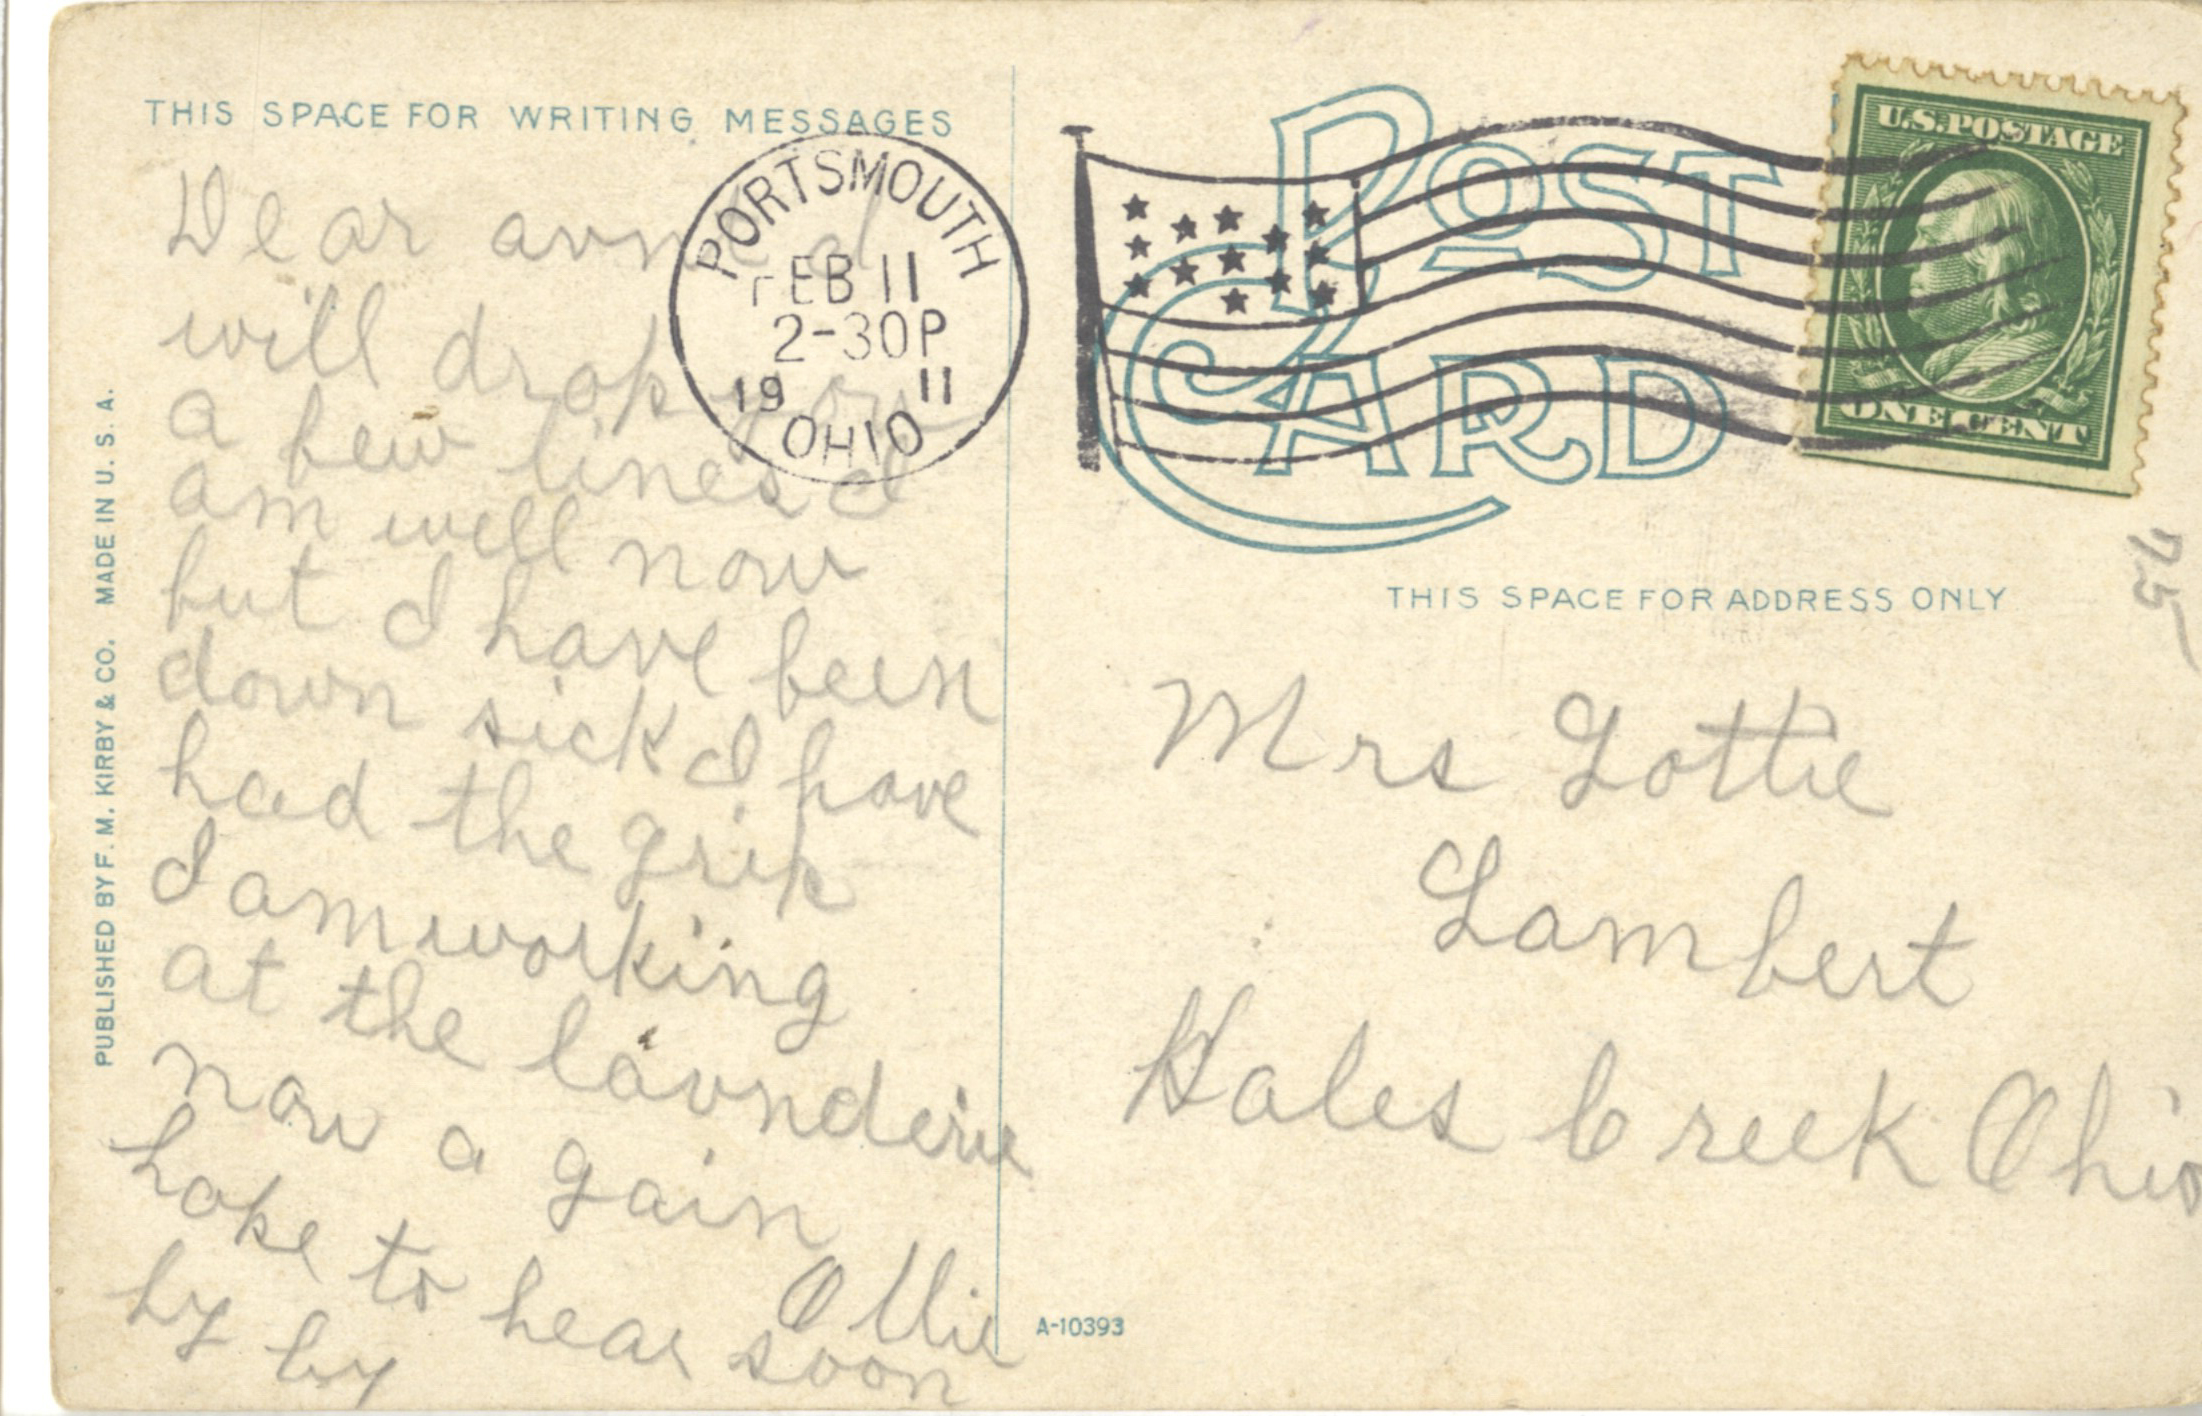 THIS SPACE FOR WRITING MESSAGES
Dear avnt I
will drop you
a few lines I
am well now
but I have been
down sick I have
had the grip
I am working
at the lavnderie
now a gain
hope to hear soon
by by
Ollie
PUBLISHED BY F. M. KIRBY & CO. MADE IN U. S. A.
PORTSMOUTH
FEB 11
2-30P
19 11
OHIO
POST
CARD
U.S. POSTAGE
ONE CENT
75
THIS SPACE FOR ADDRESS ONLY
Mrs Lottie
Lambert
Hales Creek Ohio
A-10393